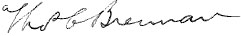 Thos C Brennan